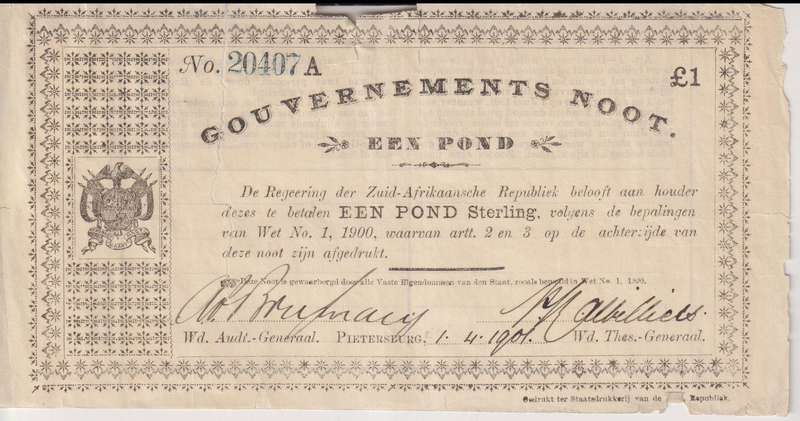 No. 20407 A
£1
GOUVERNEMENTS NOOT.
EEN POND
De Regeering der Zuid-Afrikaansche Republiek belooft aan houder
dezes te betalen EEN POND Sterling, volgens de bepalingen
van Wet No. 1, 1900, waarvan artt. 2 en 3 op de achterzijde van
deze noot zijn afgedrukt.
Deze Noot is gewaarborgd door alle Vaste Eigendommen van den Staat, zooals bepaald in Wet No. 1, 1900.
Wd. Audt.-Generaal. PIETERSBURG, 1.4.1901. Wd. Thes.-Generaal.
Gedrukt ter Staatsdrukkerij van de Republiek.